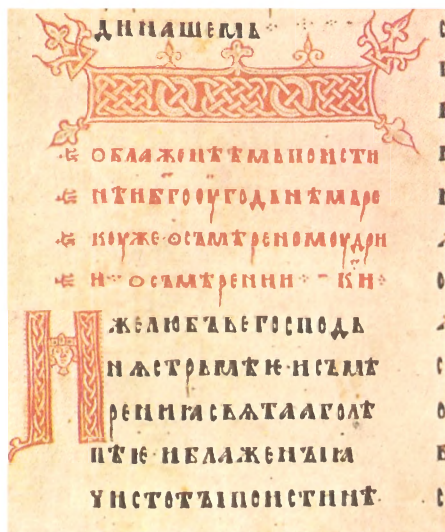 ДИНАШЕМЬ
О БЛАЖЕНѢѢМЬ ПОИСТИ
НѢ И БГООУГОДЬНѢ МАРО
КОУЖЕ · О СЪМѢРЕНОМОУДРИ
И · О СЪМѢРЕНИИ · КИ
ЖЕ ЛЮБЪВЕ ГОСПОДЬ
НѦ СТРЬМЛѢѤ · И СЪМѢ
РЕНИꙖ СВѦТААГО ЛѢ
ПѢѤ · И БЛАЖЕНЪІꙖ
ЧИСТОТЪІ ПОИСТИНѢ ·